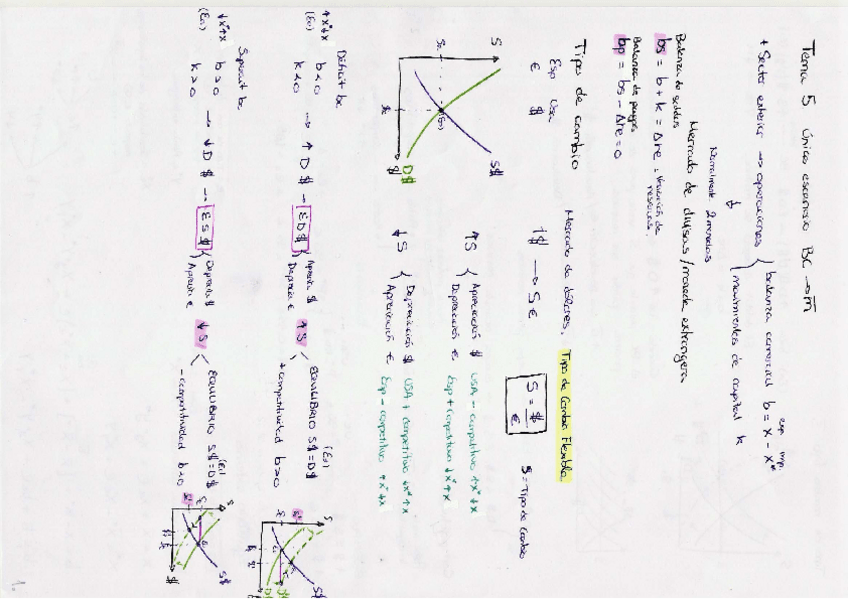 Tema 5 único escenario BC → m̄
+ Sector exterior → operaciones { balanza comercial b = x - x*
exp. imp.
movimientos de capital k
Normalmente 2 monedas
Mercado de divisas / moneda extranjera
Balanza de saldos
bs = b + k = Δre = variación de reservas.
Balanza de pagos
bp = bs - Δre = 0
Tipos de cambio
Mercado de dólares. Tipo de Cambio Flexible
Esp Usa
€ $
1$ → S€
S = $/€
S = Tipo de Cambio
S
S$
D$
$
S0
(E0)
↑S { Apreciación $ USA - competitivo ↑x* ↓x
Depreciación € Esp + competitivo ↓x* ↑x
↓S { Depreciación $ USA + competitivo ↓x* ↑x
Apreciación € Esp - competitivo ↑x* ↓x
Déficit bc
↑x* ↓x b<0 → ↑D$ → ED$ { Aprecia $ ↑S
(E0) k<0 Deprecia €
EQUILIBRIO S$=D$ (E1)
+ competitividad b>0
Superávit bc
↓x* ↑x b>0 → ↓D$ → ES$ { Deprecia $ ↓S
(E0) k>0 Aprecia €
EQUILIBRIO S$=D$ (E1)
- competitividad b<0
S
S$
D$
S
S$
$
1.